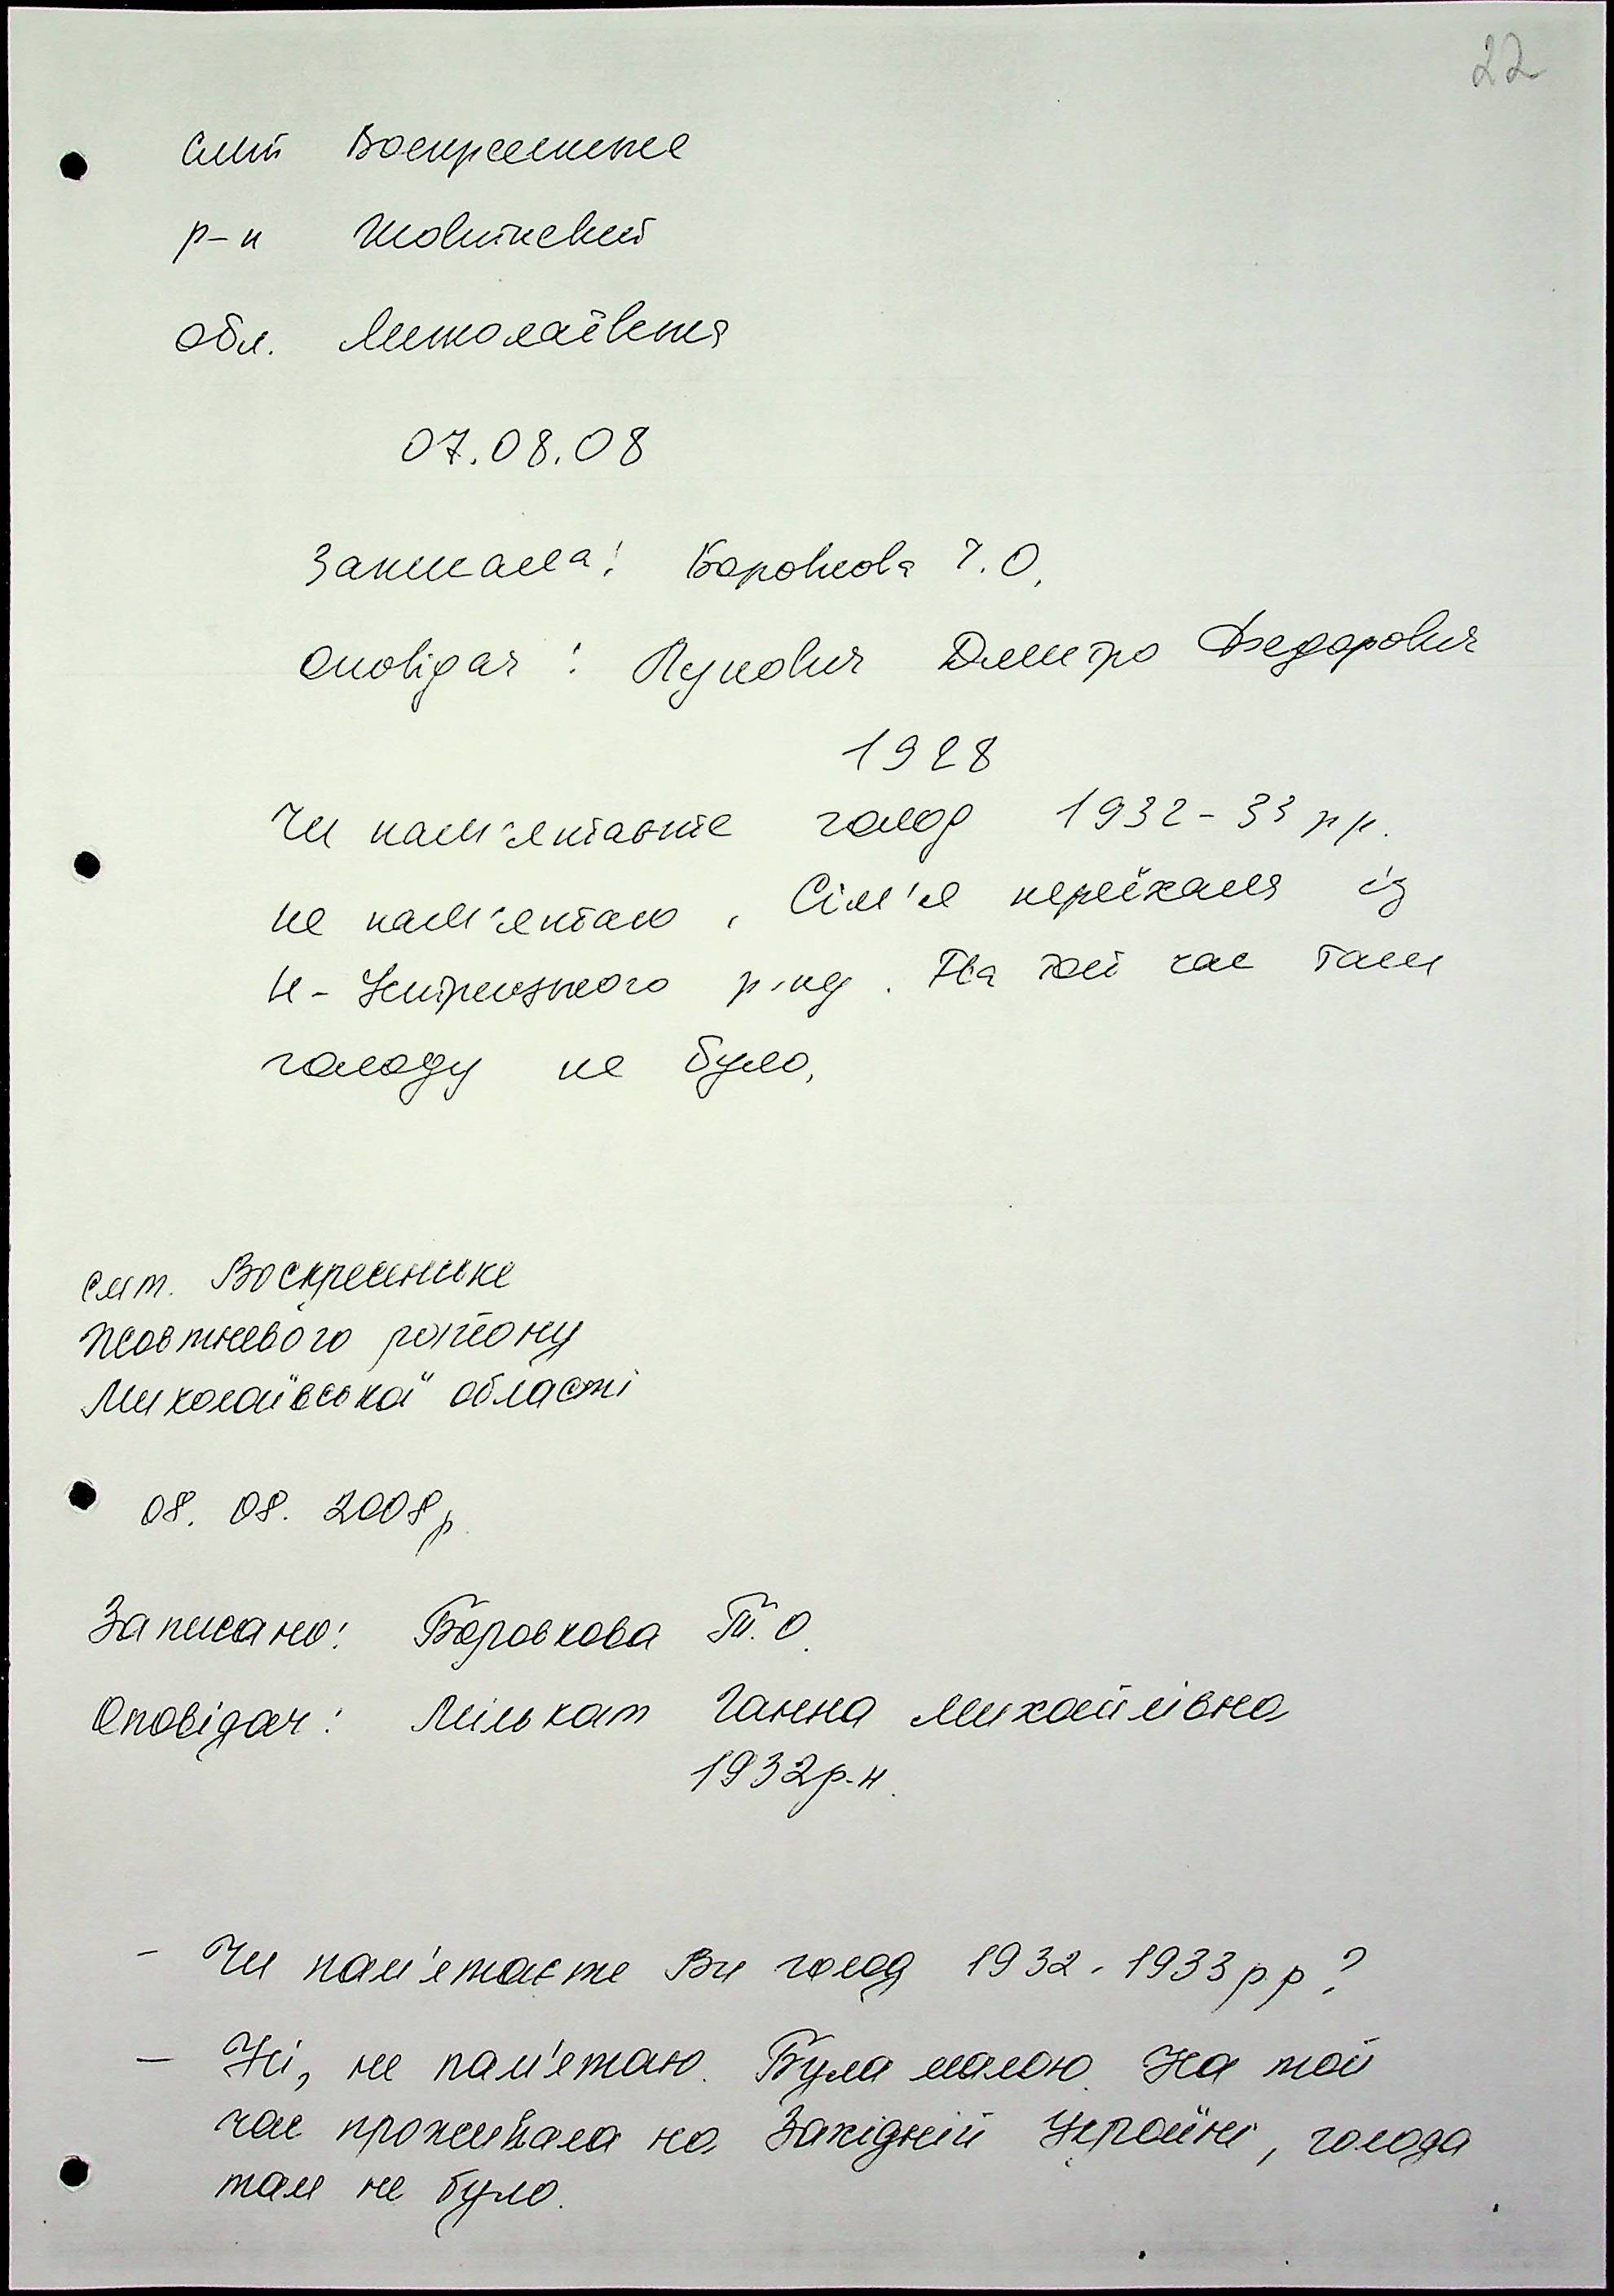 22
смт Воскресенське
р-н Жовтневий
обл. Миколаївська
07.08.08
Записала: Боровкова Т.О.
Оповідач: Дмитро Федорович
1928
Чи пам'ятаєте голод 1932-33 рр.
не пам'ятаю, Сім'я переїхала із
р-ну. На той час там
голоду не було,
смт. Воскресенське
Жовтневого району
Миколаївської області
08. 08. 2008р
Записано: Боровкова Т.О.
Оповідач: Мількат Ганна Михайлівна
1932р.н.
- Чи пам'ятаєте Ви голод 1932-1933 р.р?
- Ні, не пам'ятаю. Була малою. На той
час проживала на Західній Україні, голода
там не було.